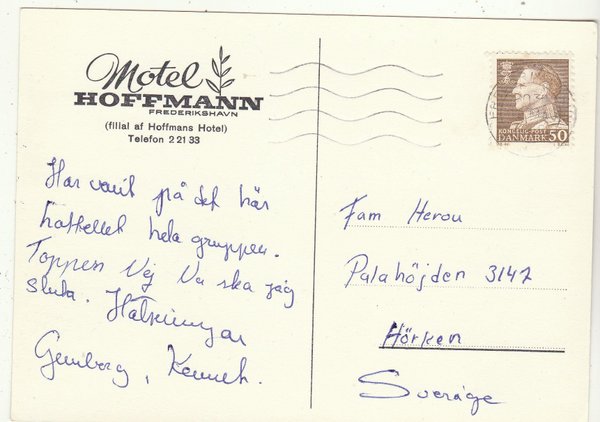 Motel
HOFFMANN
FREDERIKSHAVN
(filial af Hoffmans Hotel)
Telefon 2 21 33
Har varit på det här
hattellet hela gruppen.
Toppen Nej Nu ska jag
sluta. Hälsningar
Gunborg, Kenneth.
KONGELIG POST
DANMARK 50
Fam Herou
Palahöjden 3147
Hörken
Sveráge